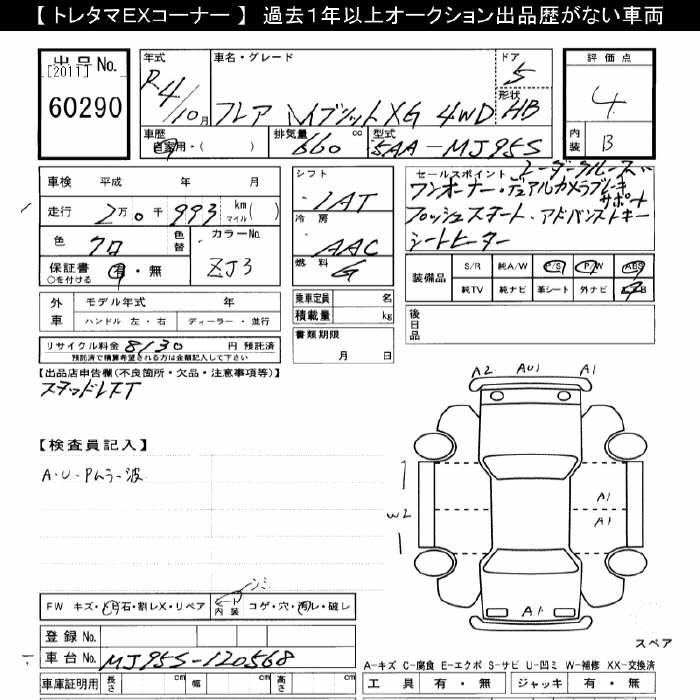 【 トレタマEXコーナー 】 過去１年以上オークション出品歴がない車両
出品No.
[2011]
60290
年式
R4/10月
車名・グレード
フレア ハイブリットXG 4WD
ドア
5
形状
HB
評価点
4
内装
B
車歴
自家用・( )
排気量
660 cc
型式
5AA-MJ95S
車検 平成 年 月
走行 2万0千993 km マイル( )
色
クロ
色替
カラーNo.
ZJ3
保証書 有・無
○を付ける
外車
モデル年式 年
ハンドル 左・右
ディーラー・並行
リサイクル料金 8130 円 預託済
預託済で精算希望される方は金額記入して下さい
シフト
IAT
冷房
AAC
燃料
G
乗車定員 名
積載量 kg
書類期限
月 日
セールスポイント レーダークルーズ
ワンオーナー・デュアルカメラブレーキサポート
プッシュスタート・アドバンストキー
シートヒーター
装備品
S/R 純A/W P/S P/W ABS
純TV 純ナビ 革シート 外ナビ
後日品
【出品店申告欄(不良箇所・欠品・注意事項等)】
スタッドレスT
【検査員記入】
A・U・Pムラ・波
A2 AU1 A1
W2
A1
A1
A1
スペア
FW キズ・飛石・割レX・リペア
シート内装
シミ
コゲ・穴・汚レ・破レ
登録No.
車台No. MJ95S-120568
車庫証明用 長さ 幅 高さ
A-キズ C-腐食 E-エクボ S-サビ U-凹ミ W-補修 XX-交換済
工具 有・無 ジャッキ 有・無